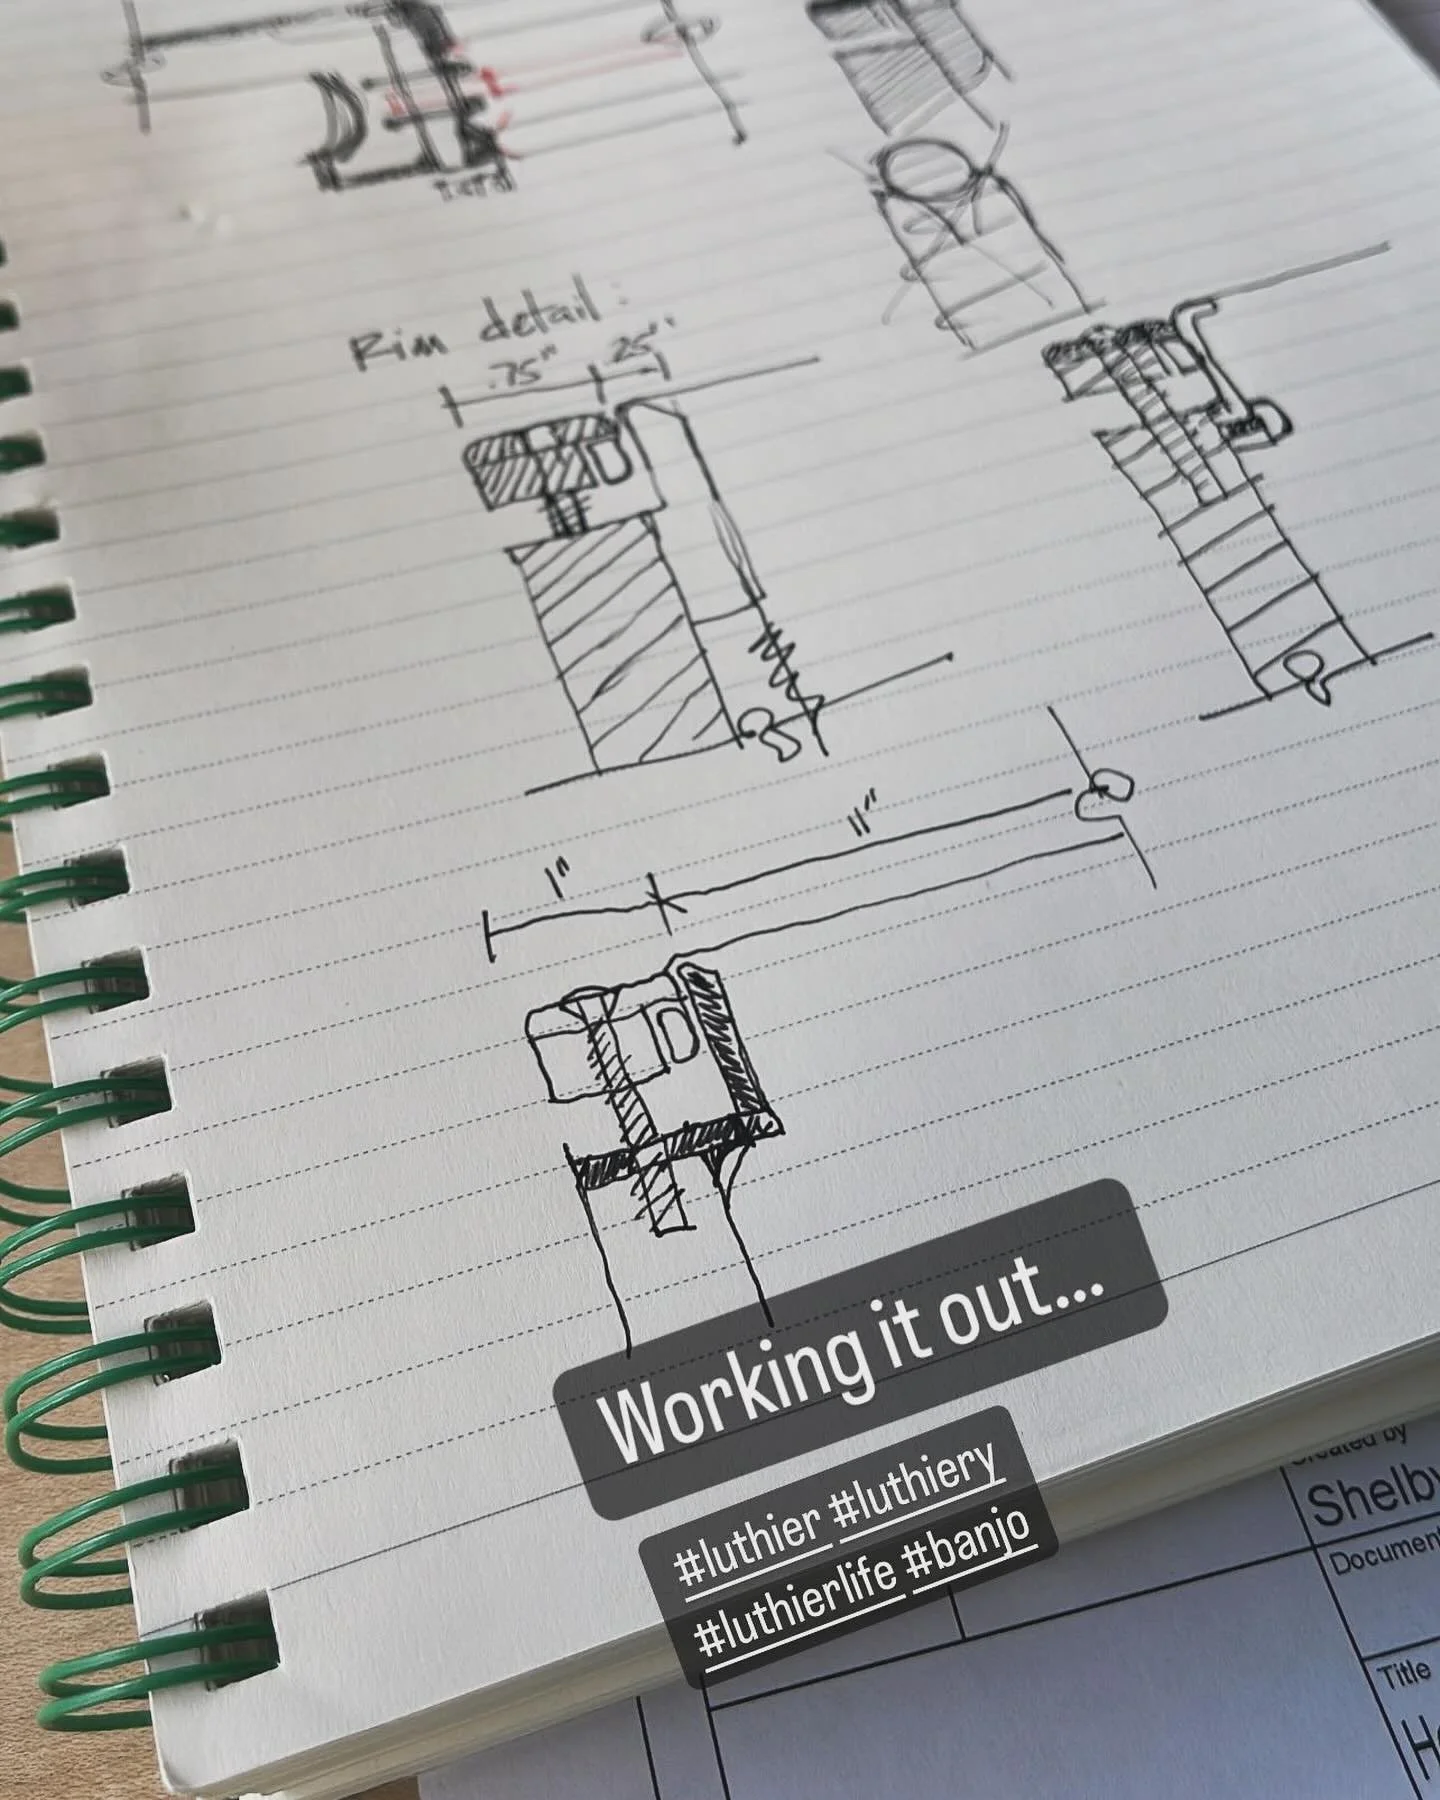 Rim detail:
.75" .25"
1" 11"
Working it out...
#luthier #luthiery
#luthierlife #banjo
Created by
Shelby
Document
Title